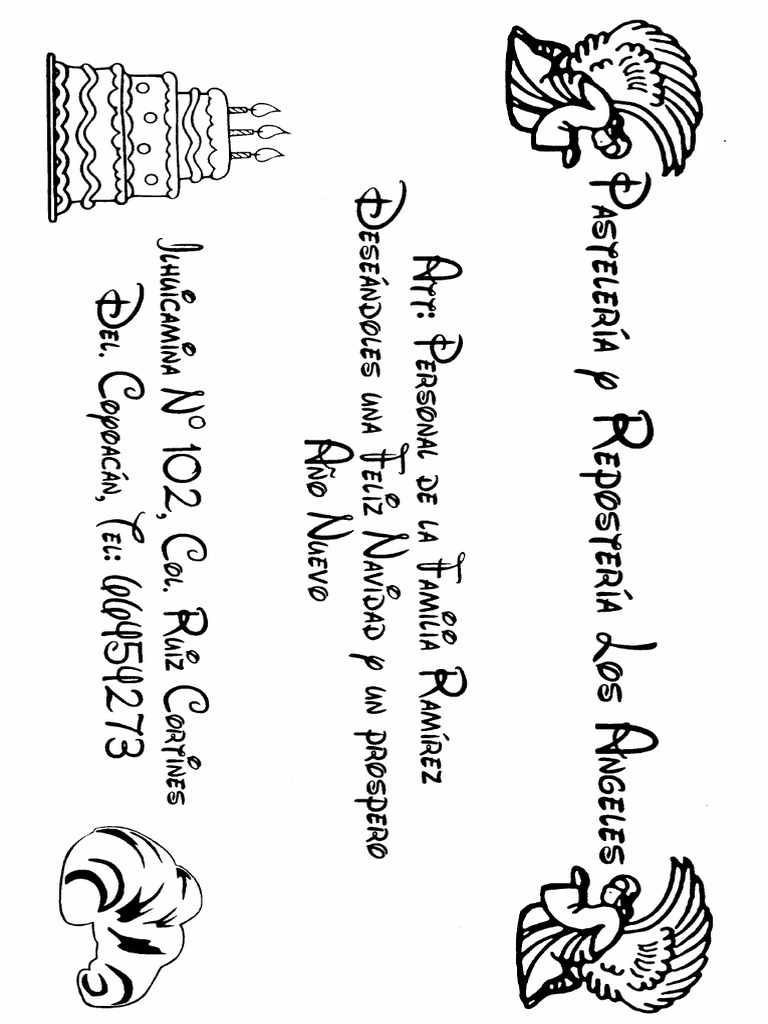 Pastelería y Repostería Los Angeles
Att: Personal de la Familia Ramírez
Deseándoles una Feliz Navidad y un prospero
Año Nuevo
Ilhuicamina N° 102, Col. Ruiz Cortines
Del. Coyoacán, Tel: 66454273